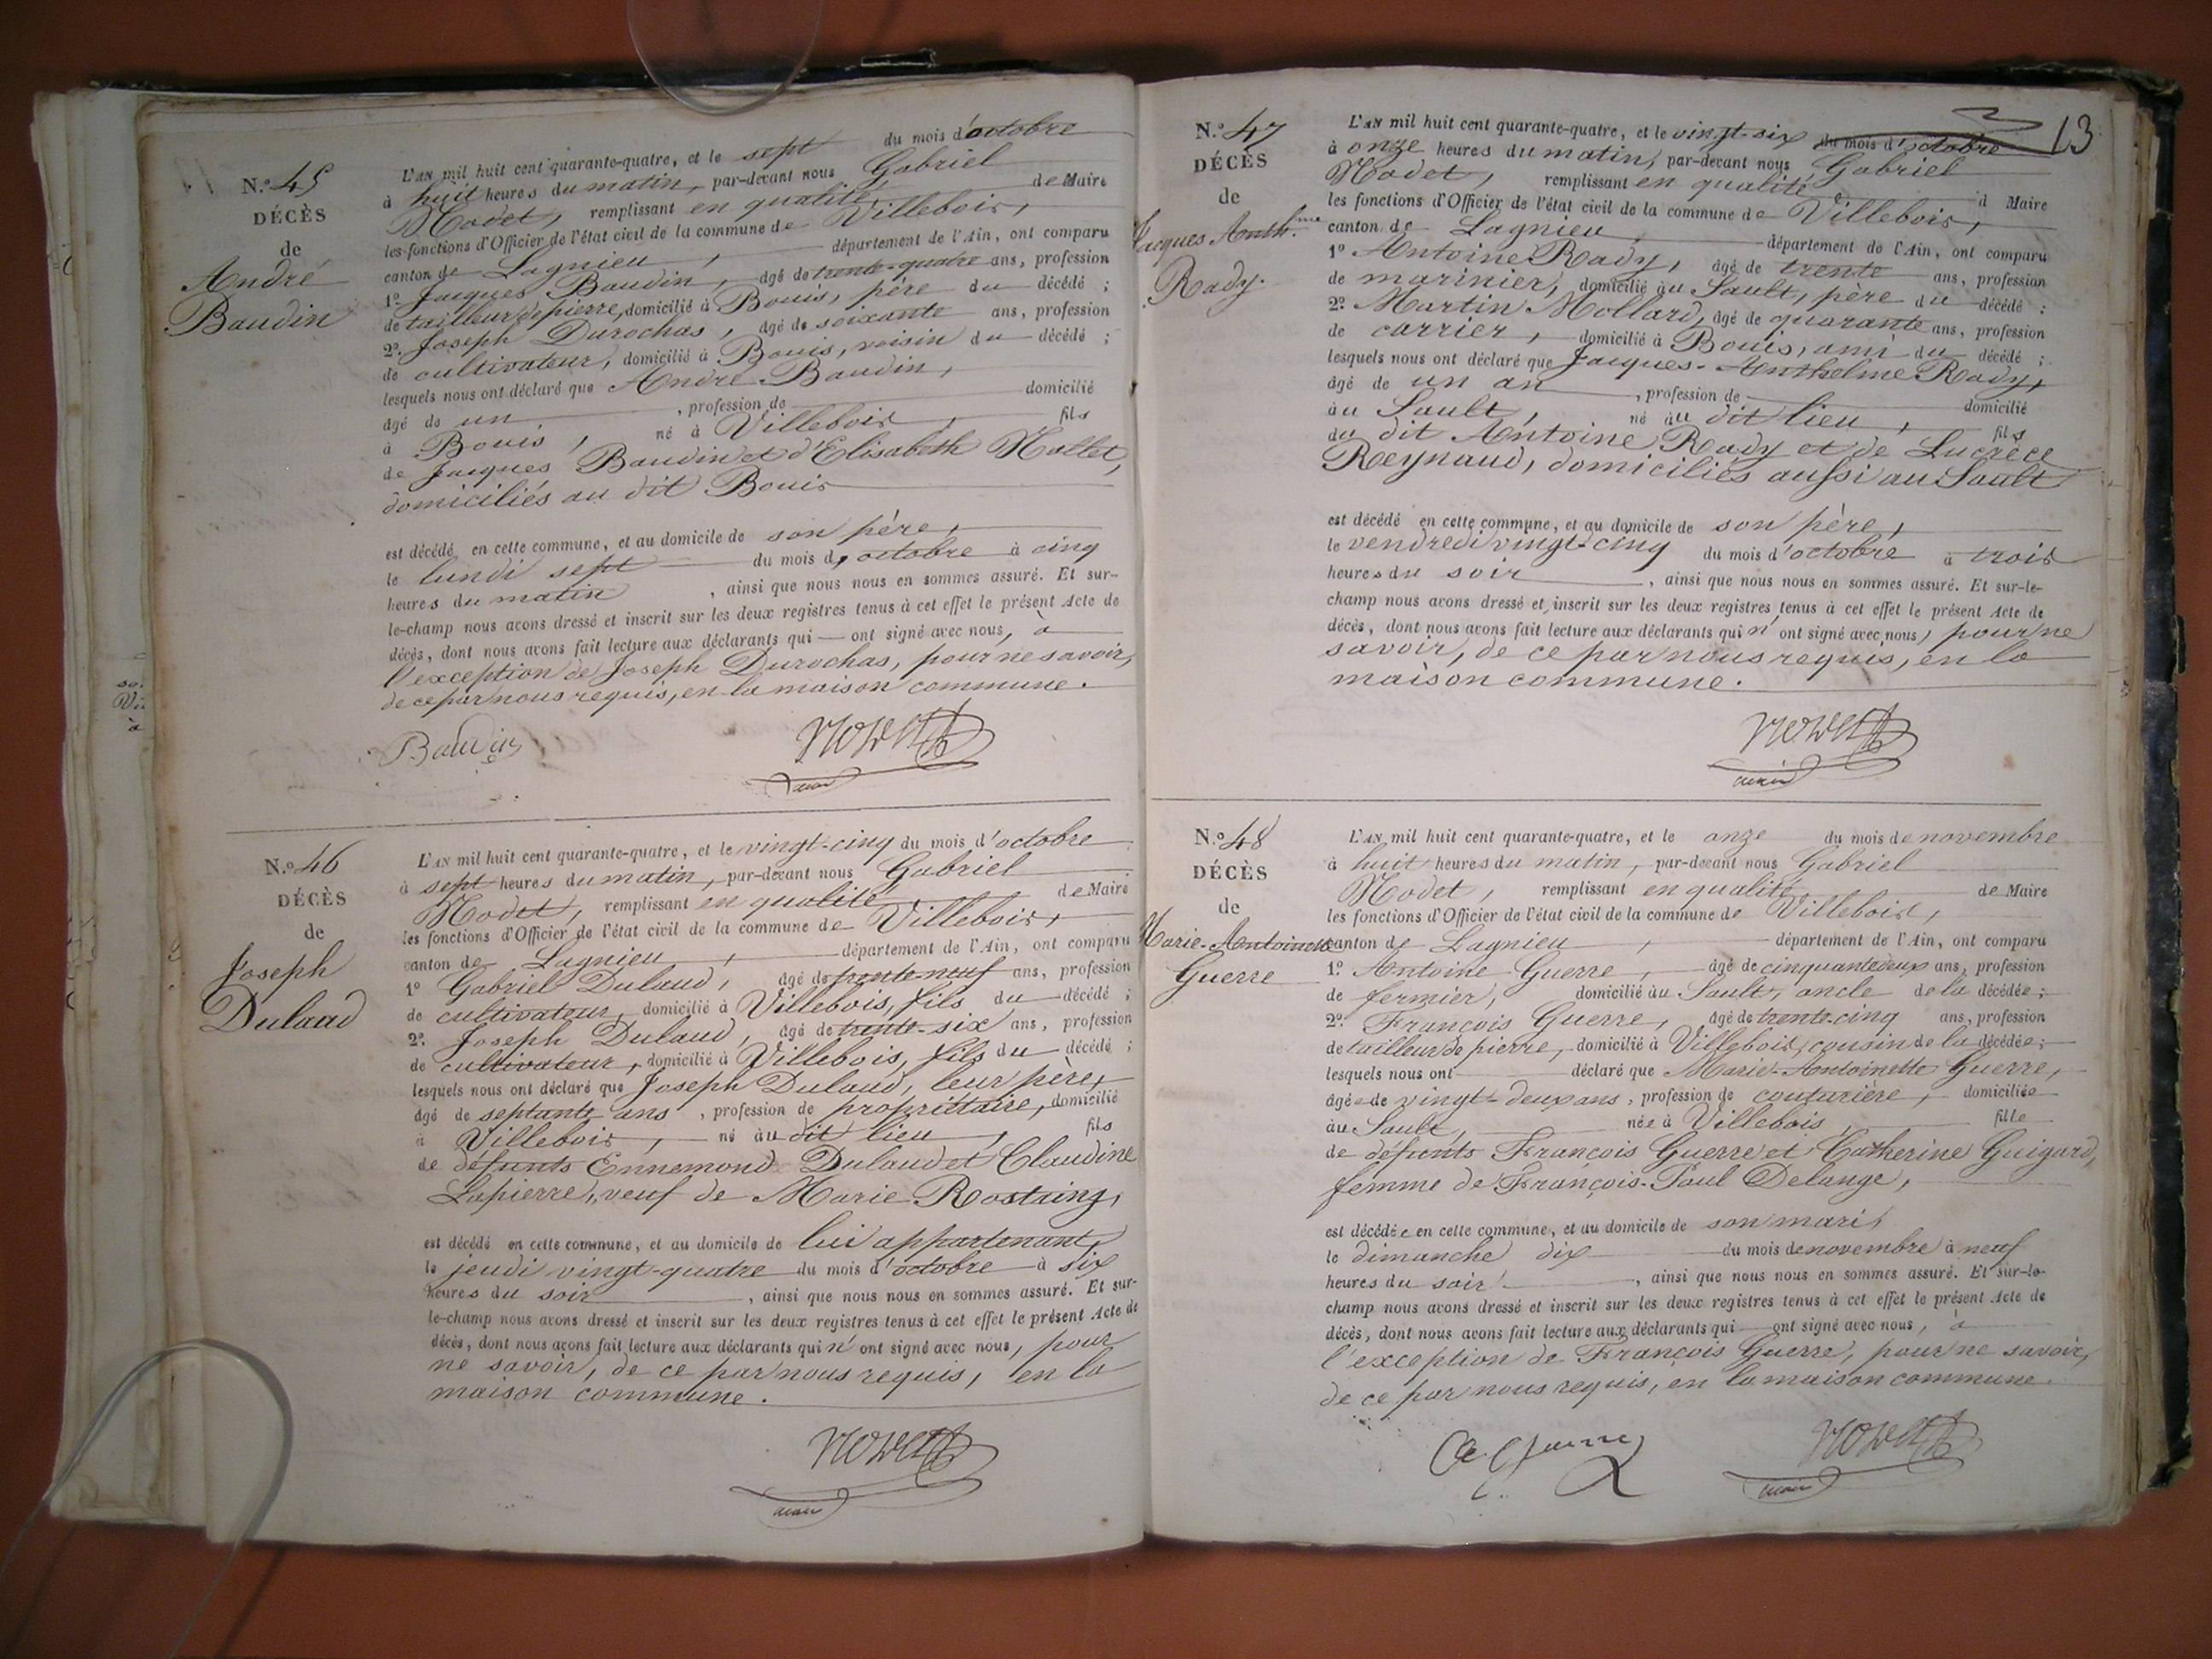 N.º 45
DÉCÈS
de
André
Baudin
L'AN mil huit cent quarante-quatre, et le sept du mois d'octobre
à huit heures du matin, par-devant nous Gabriel
Nodet, remplissant en qualité de Maire
les fonctions d'Officier de l'état civil de la commune de Villebois,
canton de Lagnieu, département de l'Ain, ont comparu
1º Jacques Baudin, âgé de trente-quatre ans, profession
de tailleur de pierre, domicilié à Bouis, père du décédé ;
2º Joseph Durochas, âgé de soixante ans, profession
de cultivateur, domicilié à Bouis, voisin du décédé ;
lesquels nous ont déclaré que André Baudin,
âgé de un , profession de domicilié
à Bouis, né à Villebois, fils
de Jacques Baudin et d'Elisabeth Mollet,
domiciliés au dit Bouis
est décédé en cette commune, et au domicile de son père,
le lundi sept du mois d'octobre à cinq
heures du matin , ainsi que nous nous en sommes assuré. Et sur-
le-champ nous avons dressé et inscrit sur les deux registres tenus à cet effet le présent Acte de
décès, dont nous avons fait lecture aux déclarants qui — ont signé avec nous, à
l'exception de Joseph Durochas, pour ne savoir,
de ce par nous requis, en la maison commune.
Baudin Nodet
maire
N.º 46
DÉCÈS
de
Joseph
Dulaud
L'AN mil huit cent quarante-quatre, et le vingt-cinq du mois d'octobre
à sept heures du matin, par-devant nous Gabriel
Nodet, remplissant en qualité de Maire
les fonctions d'Officier de l'état civil de la commune de Villebois,
canton de Lagnieu, département de l'Ain, ont comparu
1º Gabriel Dulaud, âgé de trente-neuf ans, profession
de cultivateur, domicilié à Villebois, fils du décédé ;
2º Joseph Dulaud, âgé de trente-six ans, profession
de cultivateur, domicilié à Villebois, fils du décédé ;
lesquels nous ont déclaré que Joseph Dulaud, leur père,
âgé de septante ans , profession de propriétaire, domicilié
à Villebois, né au dit lieu, fils
de défunts Ennemond Dulaud et Claudine
Lapierre, veuf de Marie Rostaing,
est décédé en cette commune, et au domicile de lui appartenant,
le jeudi vingt-quatre du mois d'octobre à six
heures du soir , ainsi que nous nous en sommes assuré. Et sur-
le-champ nous avons dressé et inscrit sur les deux registres tenus à cet effet le présent Acte de
décès, dont nous avons fait lecture aux déclarants qui n'ont signé avec nous, pour
ne savoir, de ce par nous requis, en la
maison commune.
Nodet
maire
13
N.º 47
DÉCÈS
de
Jacques Anth.me
Rady.
L'AN mil huit cent quarante-quatre, et le vingt-six du mois d'octobre
à onze heures du matin, par-devant nous Gabriel
Nodet, remplissant en qualité d Maire
les fonctions d'Officier de l'état civil de la commune de Villebois,
canton de Lagnieu, département de l'Ain, ont comparu
1º Antoine Rady, âgé de trente ans, profession
de marinier, domicilié au Sault, père du décédé ;
2º Martin Mollard, âgé de quarante ans, profession
de carrier, domicilié à Bouis, ami du décédé ;
lesquels nous ont déclaré que Jacques-Anthelme Rady,
âgé de un an , profession de domicilié
au Sault, né au dit lieu, fils
du dit Antoine Rady et de Lucrèce
Reynaud, domiciliés aussi au Sault
est décédé en cette commune, et au domicile de son père,
le vendredi vingt-cinq du mois d'octobre à trois
heures du soir , ainsi que nous nous en sommes assuré. Et sur-le-
champ nous avons dressé et inscrit sur les deux registres tenus à cet effet le présent Acte de
décès, dont nous avons fait lecture aux déclarants qui n'ont signé avec nous, pour ne
savoir, de ce par nous requis, en la
maison commune.
Nodet
maire
N.º 48
DÉCÈS
de
Marie-Antoinette
Guerre
L'AN mil huit cent quarante-quatre, et le onze du mois de novembre
à huit heures du matin, par-devant nous Gabriel
Nodet, remplissant en qualité de Maire
les fonctions d'Officier de l'état civil de la commune de Villebois,
canton de Lagnieu, département de l'Ain, ont comparu
1º Antoine Guerre, âgé de cinquante deux ans, profession
de fermier, domicilié au Sault, oncle de la décédée ;
2º François Guerre, âgé de trente-cinq ans, profession
de tailleur de pierre, domicilié à Villebois, cousin de la décédée ;
lesquels nous ont déclaré que Marie-Antoinette Guerre,
âgée de vingt-deux ans, profession de couturière, domiciliée
au Sault, née à Villebois, fille
de défunts François Guerre et Catherine Guigard,
femme de François-Paul Delange,
est décédée en cette commune, et au domicile de son mari,
le dimanche dix du mois de novembre à neuf
heures du soir , ainsi que nous nous en sommes assuré. Et sur-le-
champ nous avons dressé et inscrit sur les deux registres tenus à cet effet le présent Acte de
décès, dont nous avons fait lecture aux déclarants qui — ont signé avec nous, à
l'exception de François Guerre, pour ne savoir,
de ce par nous requis, en la maison commune.
Guerre Nodet
maire